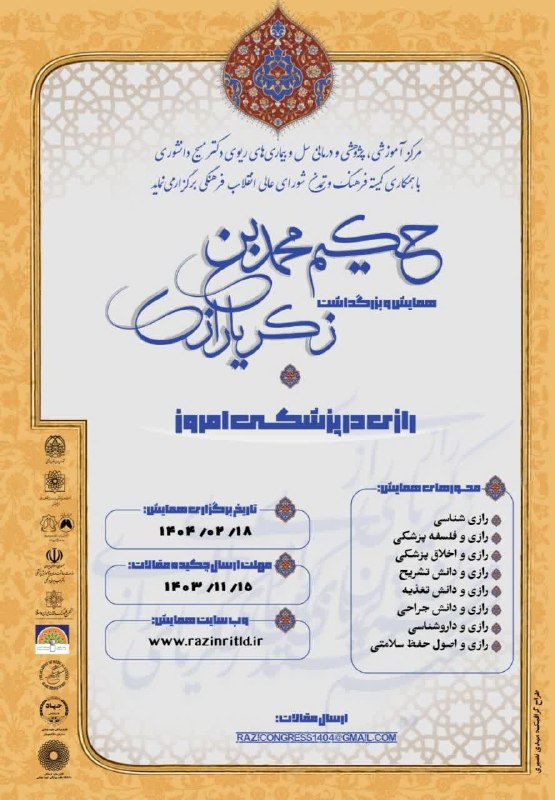 مرکز آموزشی، پژوهشی و درمانی سل و بیماری‌های ریوی دکتر مسیح دانشوری
با همکاری کمیته فرهنگ و تمدن شورای عالی انقلاب فرهنگی برگزار می نماید
همایش و بزرگداشت
حکیم محمد بن
زکریا رازی
رازی در پزشکی امروز
محورهای همایش:
رازی شناسی
رازی و فلسفه پزشکی
رازی و اخلاق پزشکی
رازی و دانش تشریح
رازی و دانش تغذیه
رازی و دانش جراحی
رازی و داروشناسی
رازی و اصول حفظ سلامتی
تاریخ برگزاری همایش:
۱۴۰۴/۰۲/۱۸
مهلت ارسال چکیده مقالات:
۱۴۰۳/۱۱/۱۵
وب سایت همایش:
www.razinritld.ir
ارسال مقالات:
RAZICONGRESS1404@GMAIL.COM
طراح گرافیک: مهدی نصیری